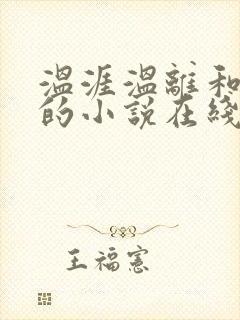 温涯温離和
的小说在綫
王福憲